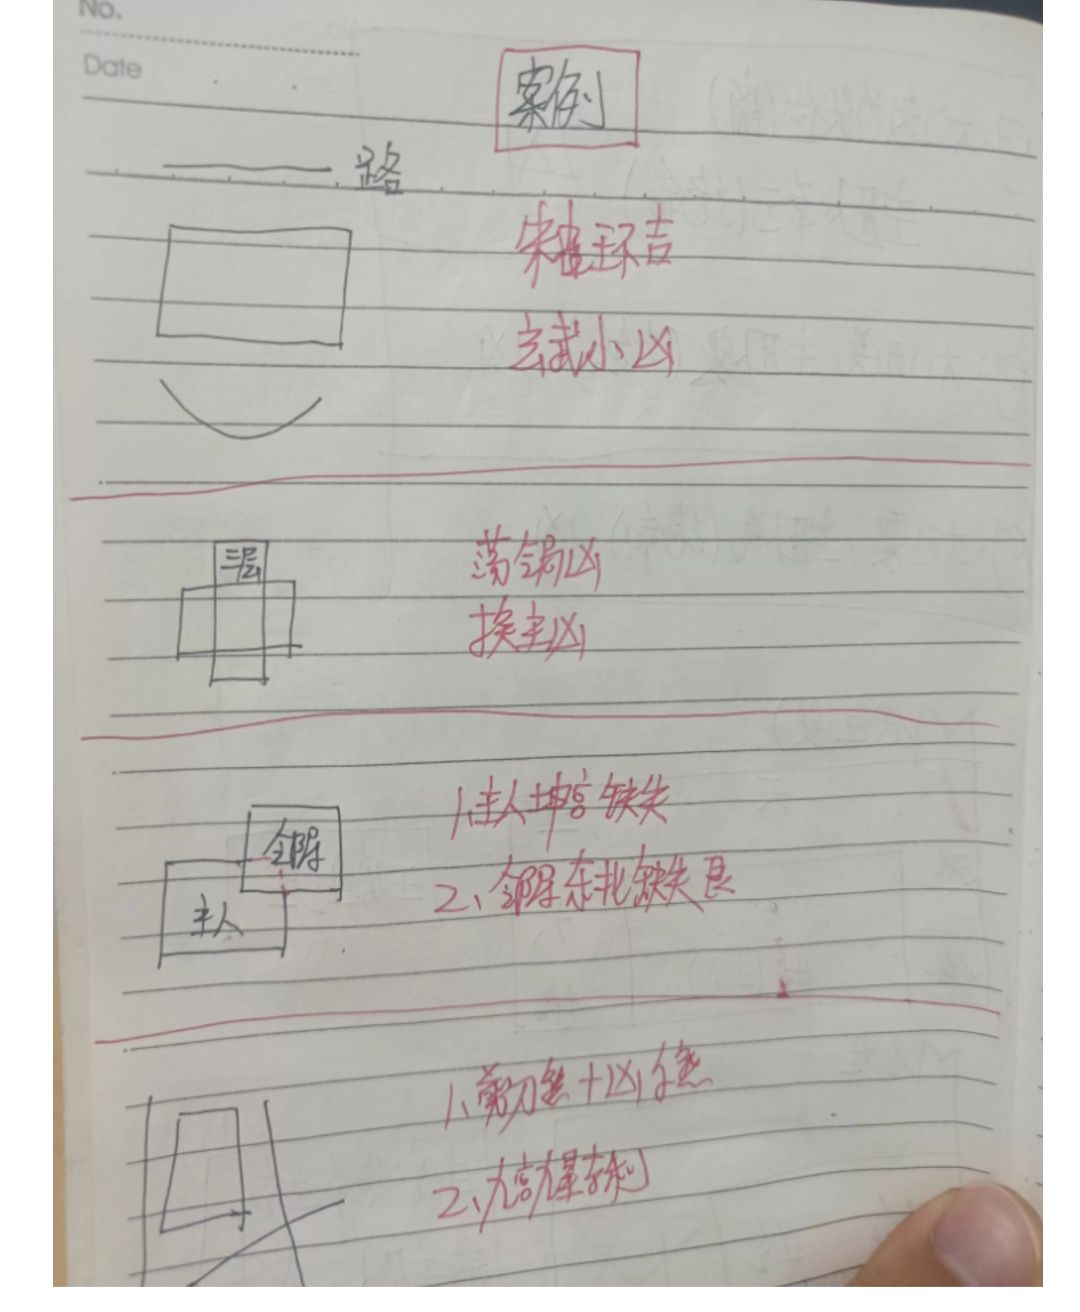 No.
Date
案例
路
朱雀玉环吉
玄武小凶
三层
荡锅凶
换主凶
邻居
主人
1、主人坤宫缺失
2、邻居东北缺失艮
1、剪刀煞+凶煞
2、九宫